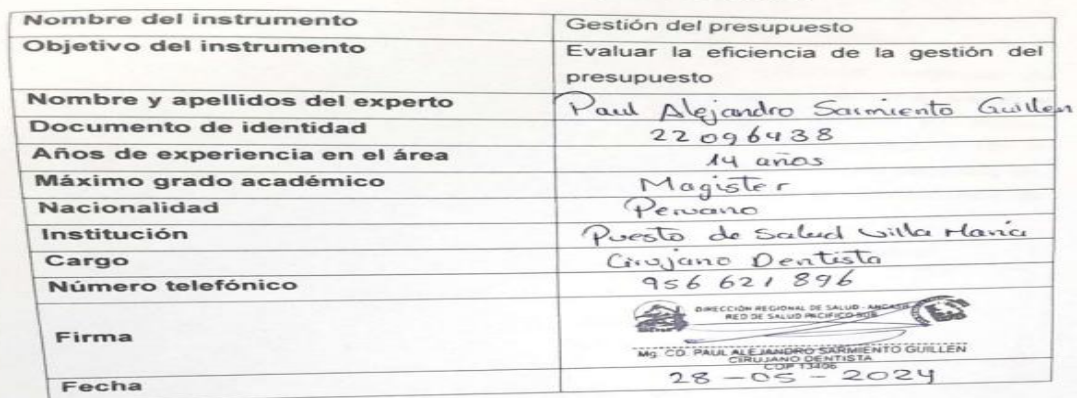 Nombre del instrumento Gestión del presupuesto
Objetivo del instrumento Evaluar la eficiencia de la gestión del
presupuesto
Nombre y apellidos del experto Paul Alejandro Sarmiento Guillen
Documento de identidad 22096438
Años de experiencia en el área 14 años
Máximo grado académico Magister
Nacionalidad Peruano
Institución Puesto de Salud Villa María
Cargo Cirujano Dentista
Número telefónico 956 621 896
DIRECCIÓN REGIONAL DE SALUD - ANCASH
RED DE SALUD PACIFICO SUR
Firma
Mg. CD. PAUL ALEJANDRO SARMIENTO GUILLÉN
CIRUJANO DENTISTA
COP 13406
Fecha 28-05-2024